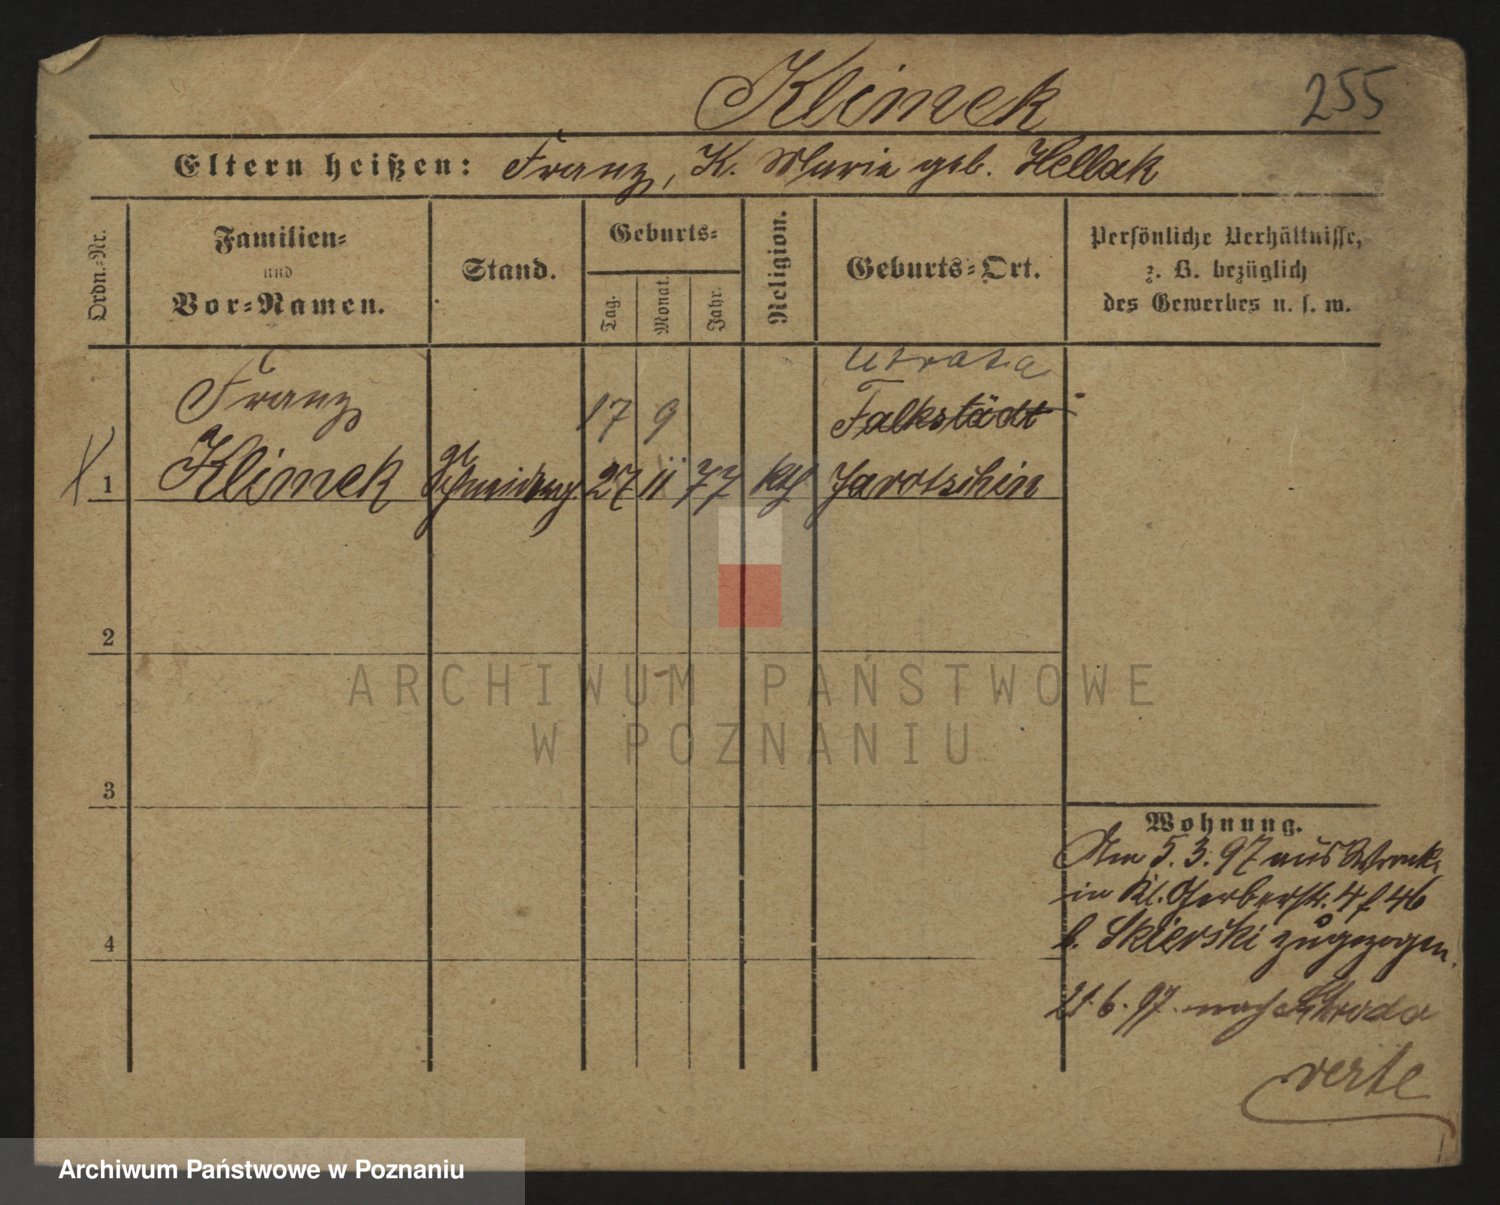 Klimek 255
Eltern heißen: Franz, K. Marie geb. Hellak
Ordn.-Nr.
Familien-
und
Vor-Namen.
Stand.
Geburts-
Tag.
Monat.
Jahr.
Religion.
Geburts-Ort.
Persönliche Verhältnisse,
z. B. bezüglich
des Gewerbes u. s. w.
Utrata
Franz 17 9 Falkstädt
1 Klimek 27 11 77 kth Jarotschin
2
3
4
Wohnung.
Am 5.3.97 aus Wronke
in Kl. Gerberstr. 4
b. Skierski zugezogen.
21.6.97 nach Schroda
verte
ARCHIWUM PAŃSTWOWE
W POZNANIU
Archiwum Państwowe w Poznaniu